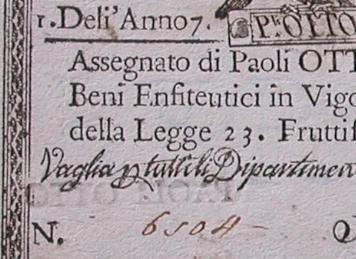 1.Deli'Anno7.
Pli. OTTO
Assegnato di Paoli OTT
Beni Enfiteutici in Vigo
della Legge 23. Fruttif
Vaglia p tutti li Dipartimen
N. 6504 Q